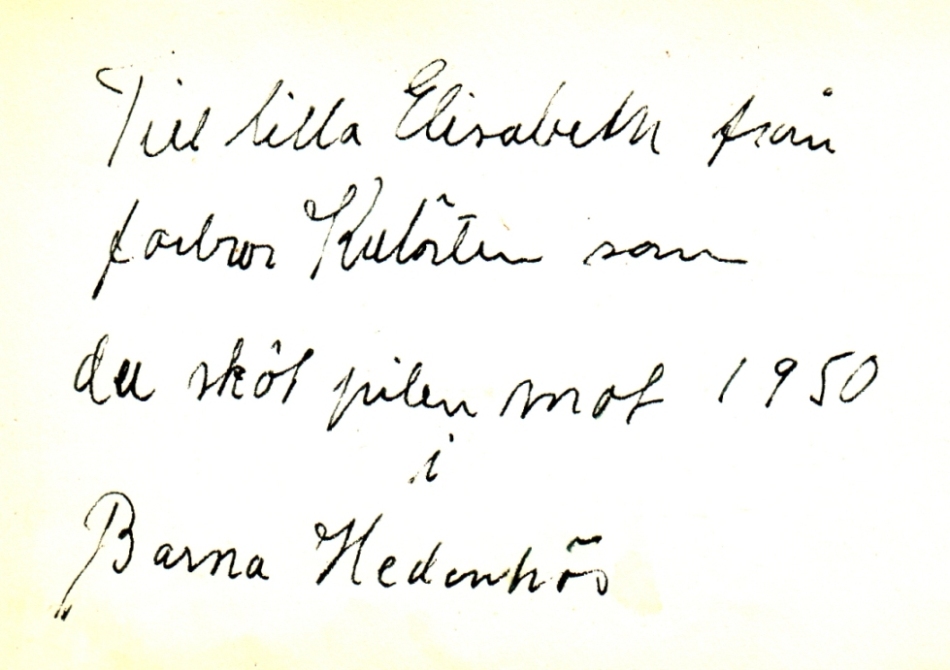 Till lilla Elisabeth från
farbror Kulörten som
du sköt pilen mot 1950
i
Barna Hedenhös